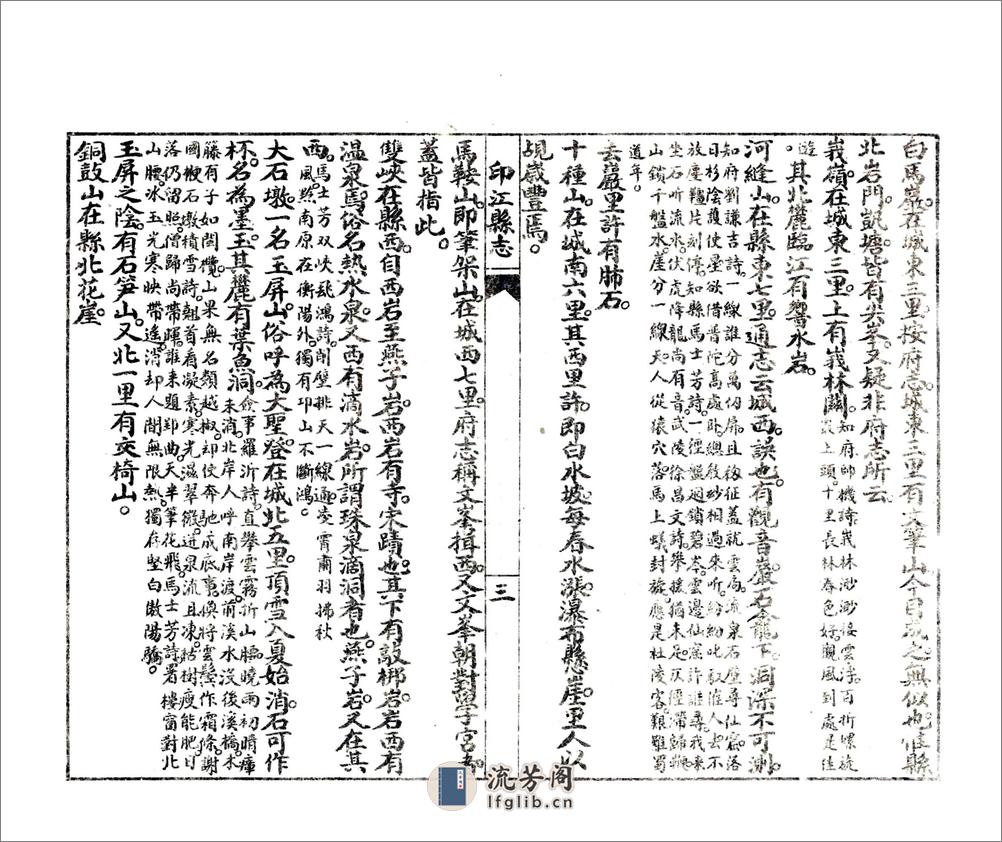 白馬巖在城東三里按府志城東三里有文筆山今目此之無似也惟縣
北岩門凱塘皆有尖峯又疑非府志所云
峩嶺在城東三里上有峩林關知府帥機詩峩林渺渺接雲深百折螺旋
最上頭十里長林春色好觀風到處是佳
遊其北麓臨江有響水岩
河縫山在縣東七里通志云城西誤也有觀音巖石龕下洞深不可測
知府劉謙吉詩一線誰分萬仭
日杉陰護使星欲借普陀高處臥總教砂相過來听
知縣馬士芳詩一徑盤迴鎖碧岑雲邊仙窟許誰尋我來
坐石听流水伏虎降龍尚有音武陵徐昌文詩
山鎖千盤水崖分一線天人從猿穴落馬上蟻封旋應是杜陵客艱難蜀
道年
去巖里許有肺石
十種山在城南六里其西里許即白水坡每春水漲瀑布懸崖里人以
覘歲豐焉
印江縣志
三
馬鞍山即筆架山在城西七里府志稱文峯揖西又文峯朝對學子宮
蓋皆指此
雙峽在縣西自西岩至燕子岩西岩有寺宋蹟也其下有敲梆岩岩西有
温泉焉俗名熱水泉又西有滴水岩所謂珠泉滴洞者也燕子岩又在其
西馬士芳双峡飛鴻詩削壁排天一線通凌霄肅羽拂秋
風既然南原在衡陽外獨有卭山不斷鴻
大石墩一名玉屏山俗呼為大聖登在城北五里頂雪入夏始消石可作
杯名為墨玉其麓有葉魚洞僉事羅沂詩直攀雲霧折山腦曉雨初晴瘴
未消北岸人呼南岸渡前溪水没後溪橋木
藤有子如閩欖山果無名類越椒却使奔馳成底事換将雲鬓作霜條謝
國楩石墩積雪詩翹首看凝素寒光温翠微迸泉流且凍枯樹瘦能肥日
落仍留照僧歸尚帶暉誰来題郢曲天半筆花飛馬士芳詩署樓富對北
山腰冰玉光寒映帶遙消却人間無限熱獨存堅白傲陽驕
玉屏之陰有石笋山又北一里有交椅山
銅鼓山在縣北花崖
流芳阁
lfglib.cn